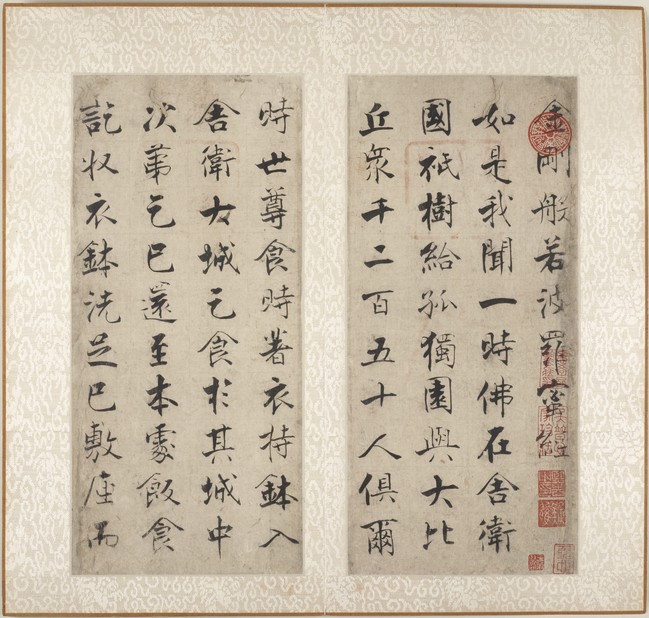 金剛般若波羅蜜經
如是我聞一時佛在舍衛
國祇樹給孤獨園與大比
丘衆千二百五十人俱爾
時世尊食時著衣持鉢入
舍衛大城乞食於其城中
次苐乞已還至本處飯食
訖収衣鉢洗足已敷座而